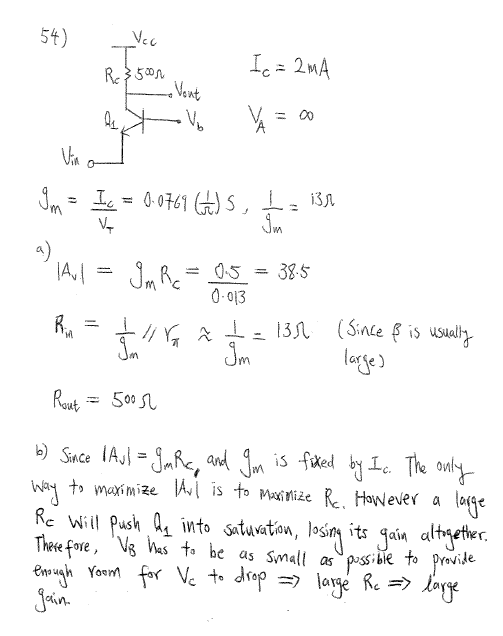 54)
Vcc
Rc 500Ω
Vout
Q1
Vb
Vin
Ic = 2mA
VA = ∞
gm = Ic / VT = 0.0769 (1/Ω) S, 1/gm = 13Ω
a)
|Av| = gm Rc = 0.5 / 0.013 = 38.5
Rin = 1/gm // rπ ≈ 1/gm = 13Ω (Since β is usually
large)
Rout = 500Ω
b) Since |Av| = gmRc, and gm is fixed by Ic. The only
way to maximize |Av| is to maximize Rc. However a large
Rc will push Q1 into saturation, losing its gain altogether.
Therefore, VB has to be as small as possible to provide
enough room for Vc to drop ⇒ large Rc ⇒ large
gain.